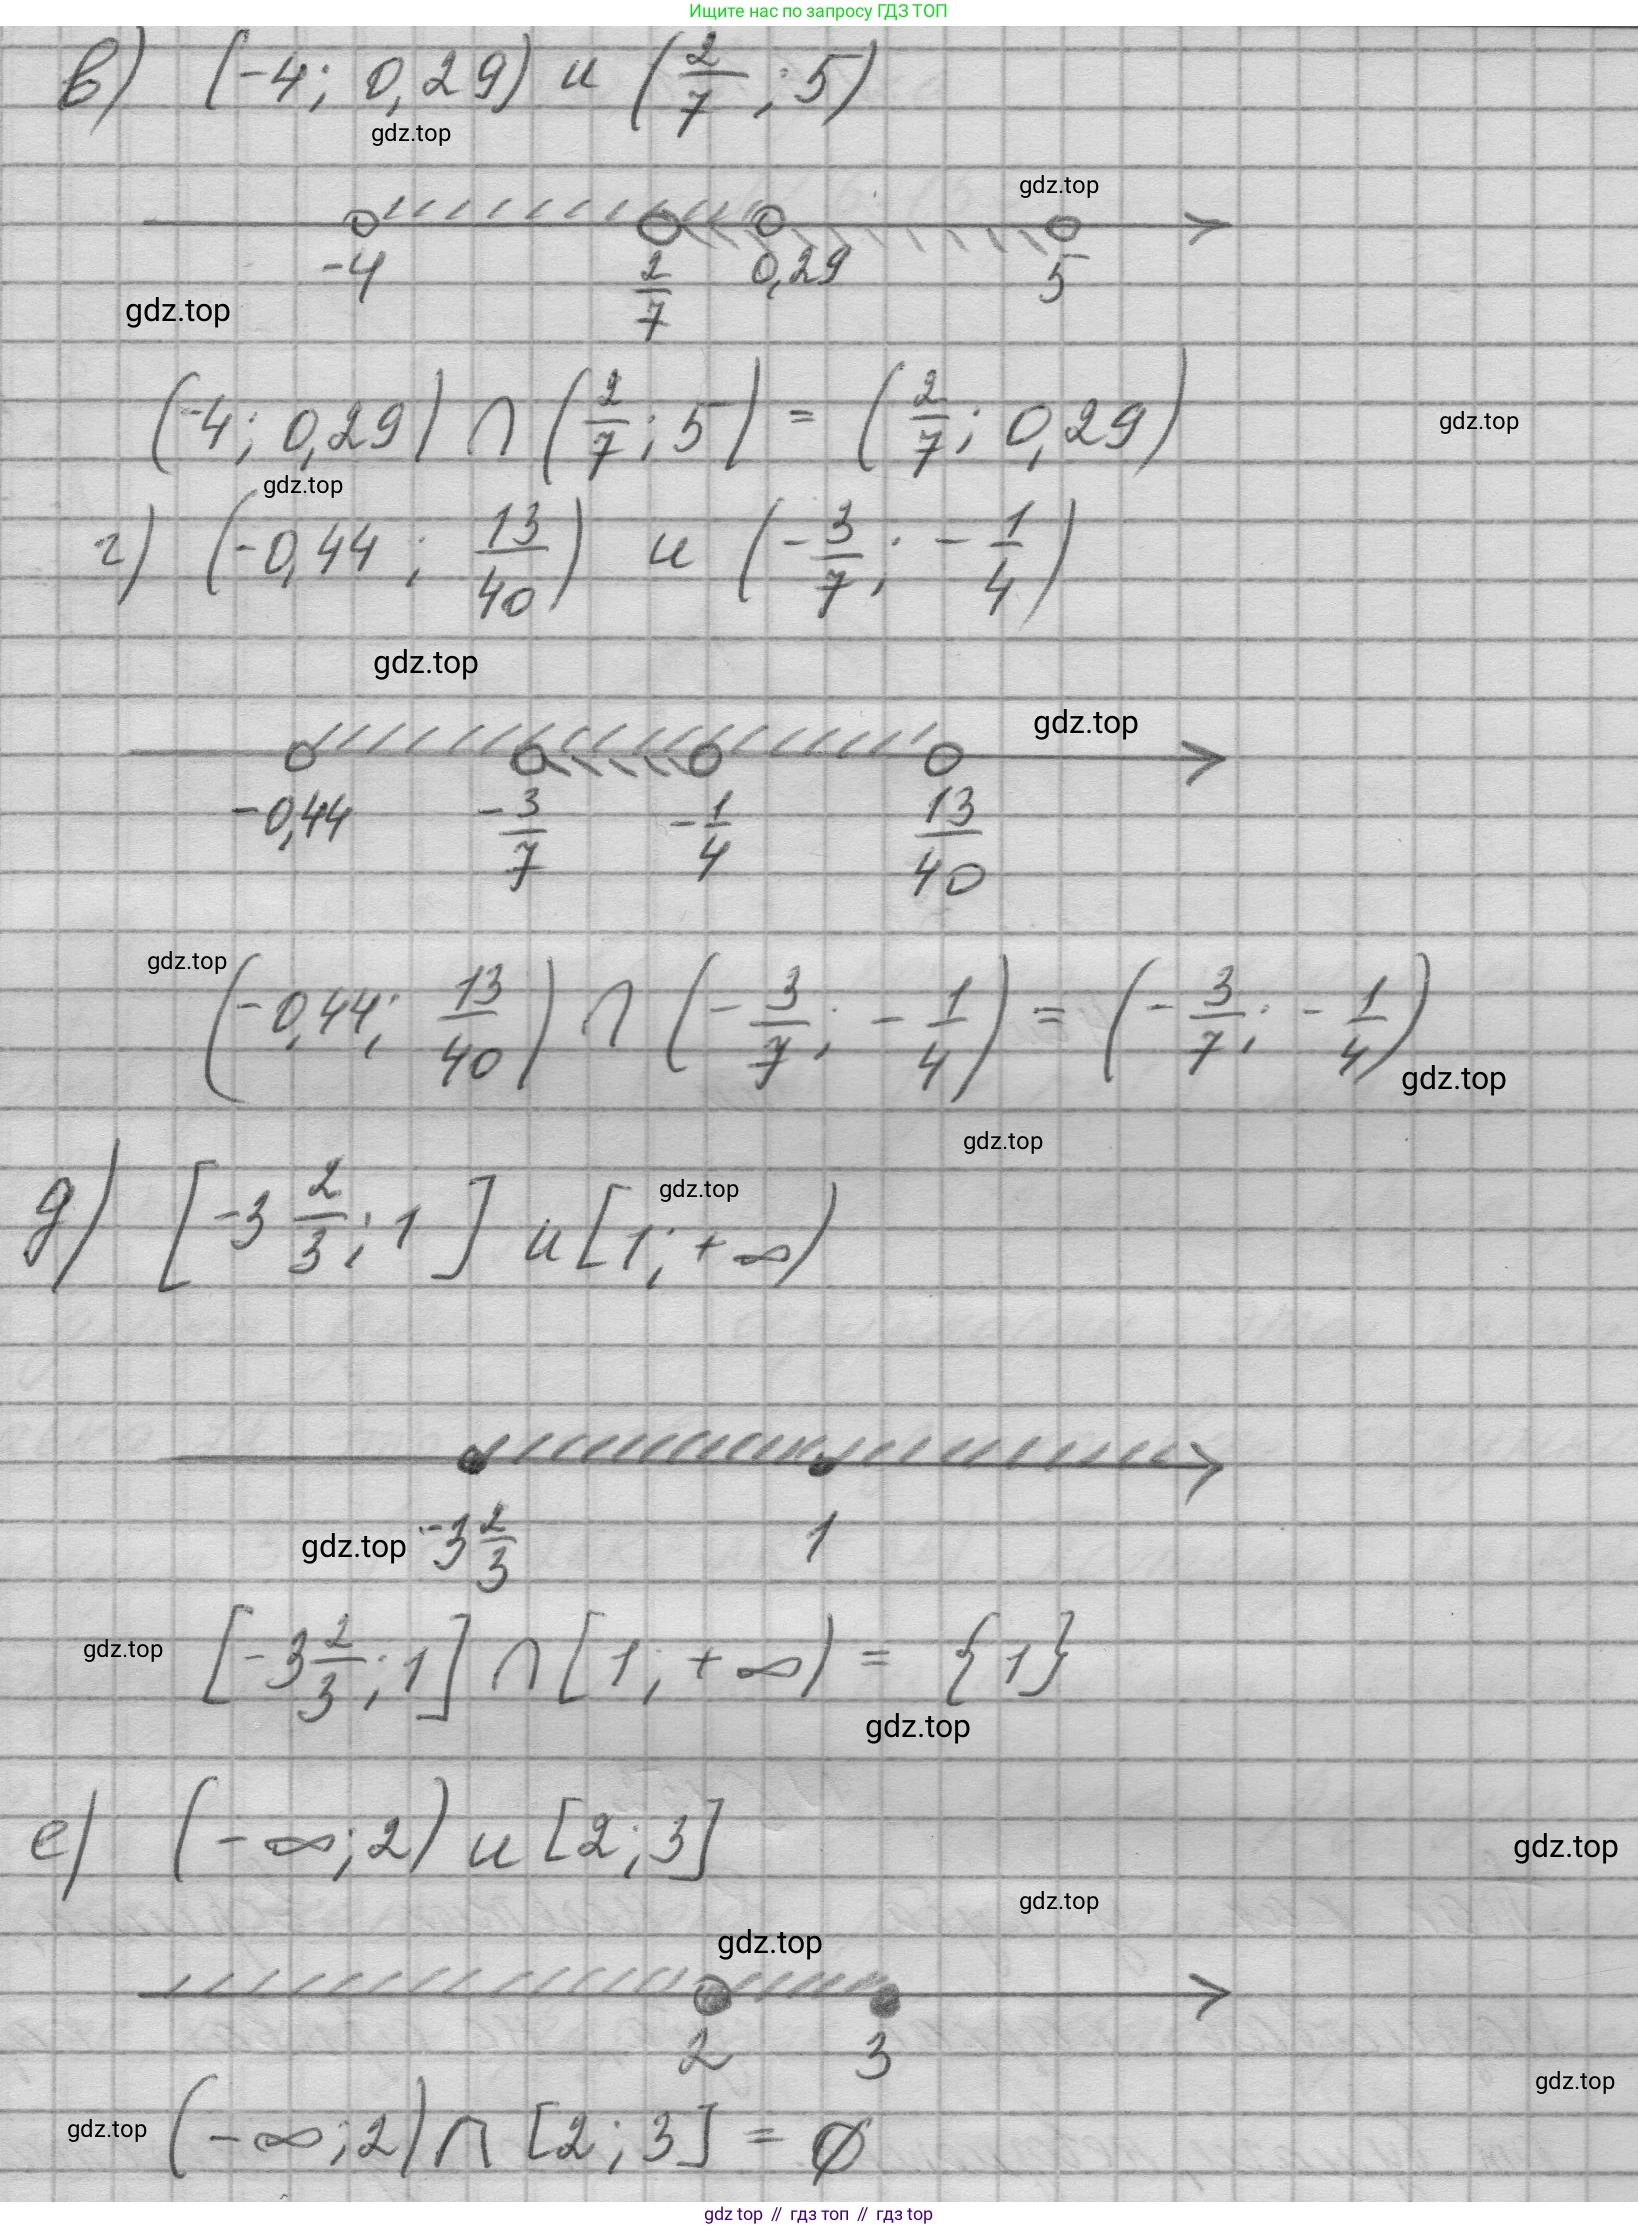 Ищите нас по запросу ГДЗ ТОП
в) (-4; 0,29) и (2/7; 5)
gdz.top
gdz.top
-4 2/7 0,29 5
gdz.top
(-4; 0,29) ∩ (2/7; 5) = (2/7; 0,29)
gdz.top
gdz.top
г) (-0,44; 13/40) и (-3/7; -1/4)
gdz.top
gdz.top
-0,44 -3/7 -1/4 13/40
gdz.top
(-0,44; 13/40) ∩ (-3/7; -1/4) = (-3/7; -1/4)
gdz.top
gdz.top
д) [-3 2/3; 1] и [1; +∞)
gdz.top
-3 2/3 1
gdz.top
[-3 2/3; 1] ∩ [1; +∞) = {1}
gdz.top
gdz.top
е) (-∞; 2) и [2; 3]
gdz.top
gdz.top
gdz.top
2 3
gdz.top
(-∞; 2) ∩ [2; 3] = ∅
gdz.top
gdz top // гдз топ // гдз top